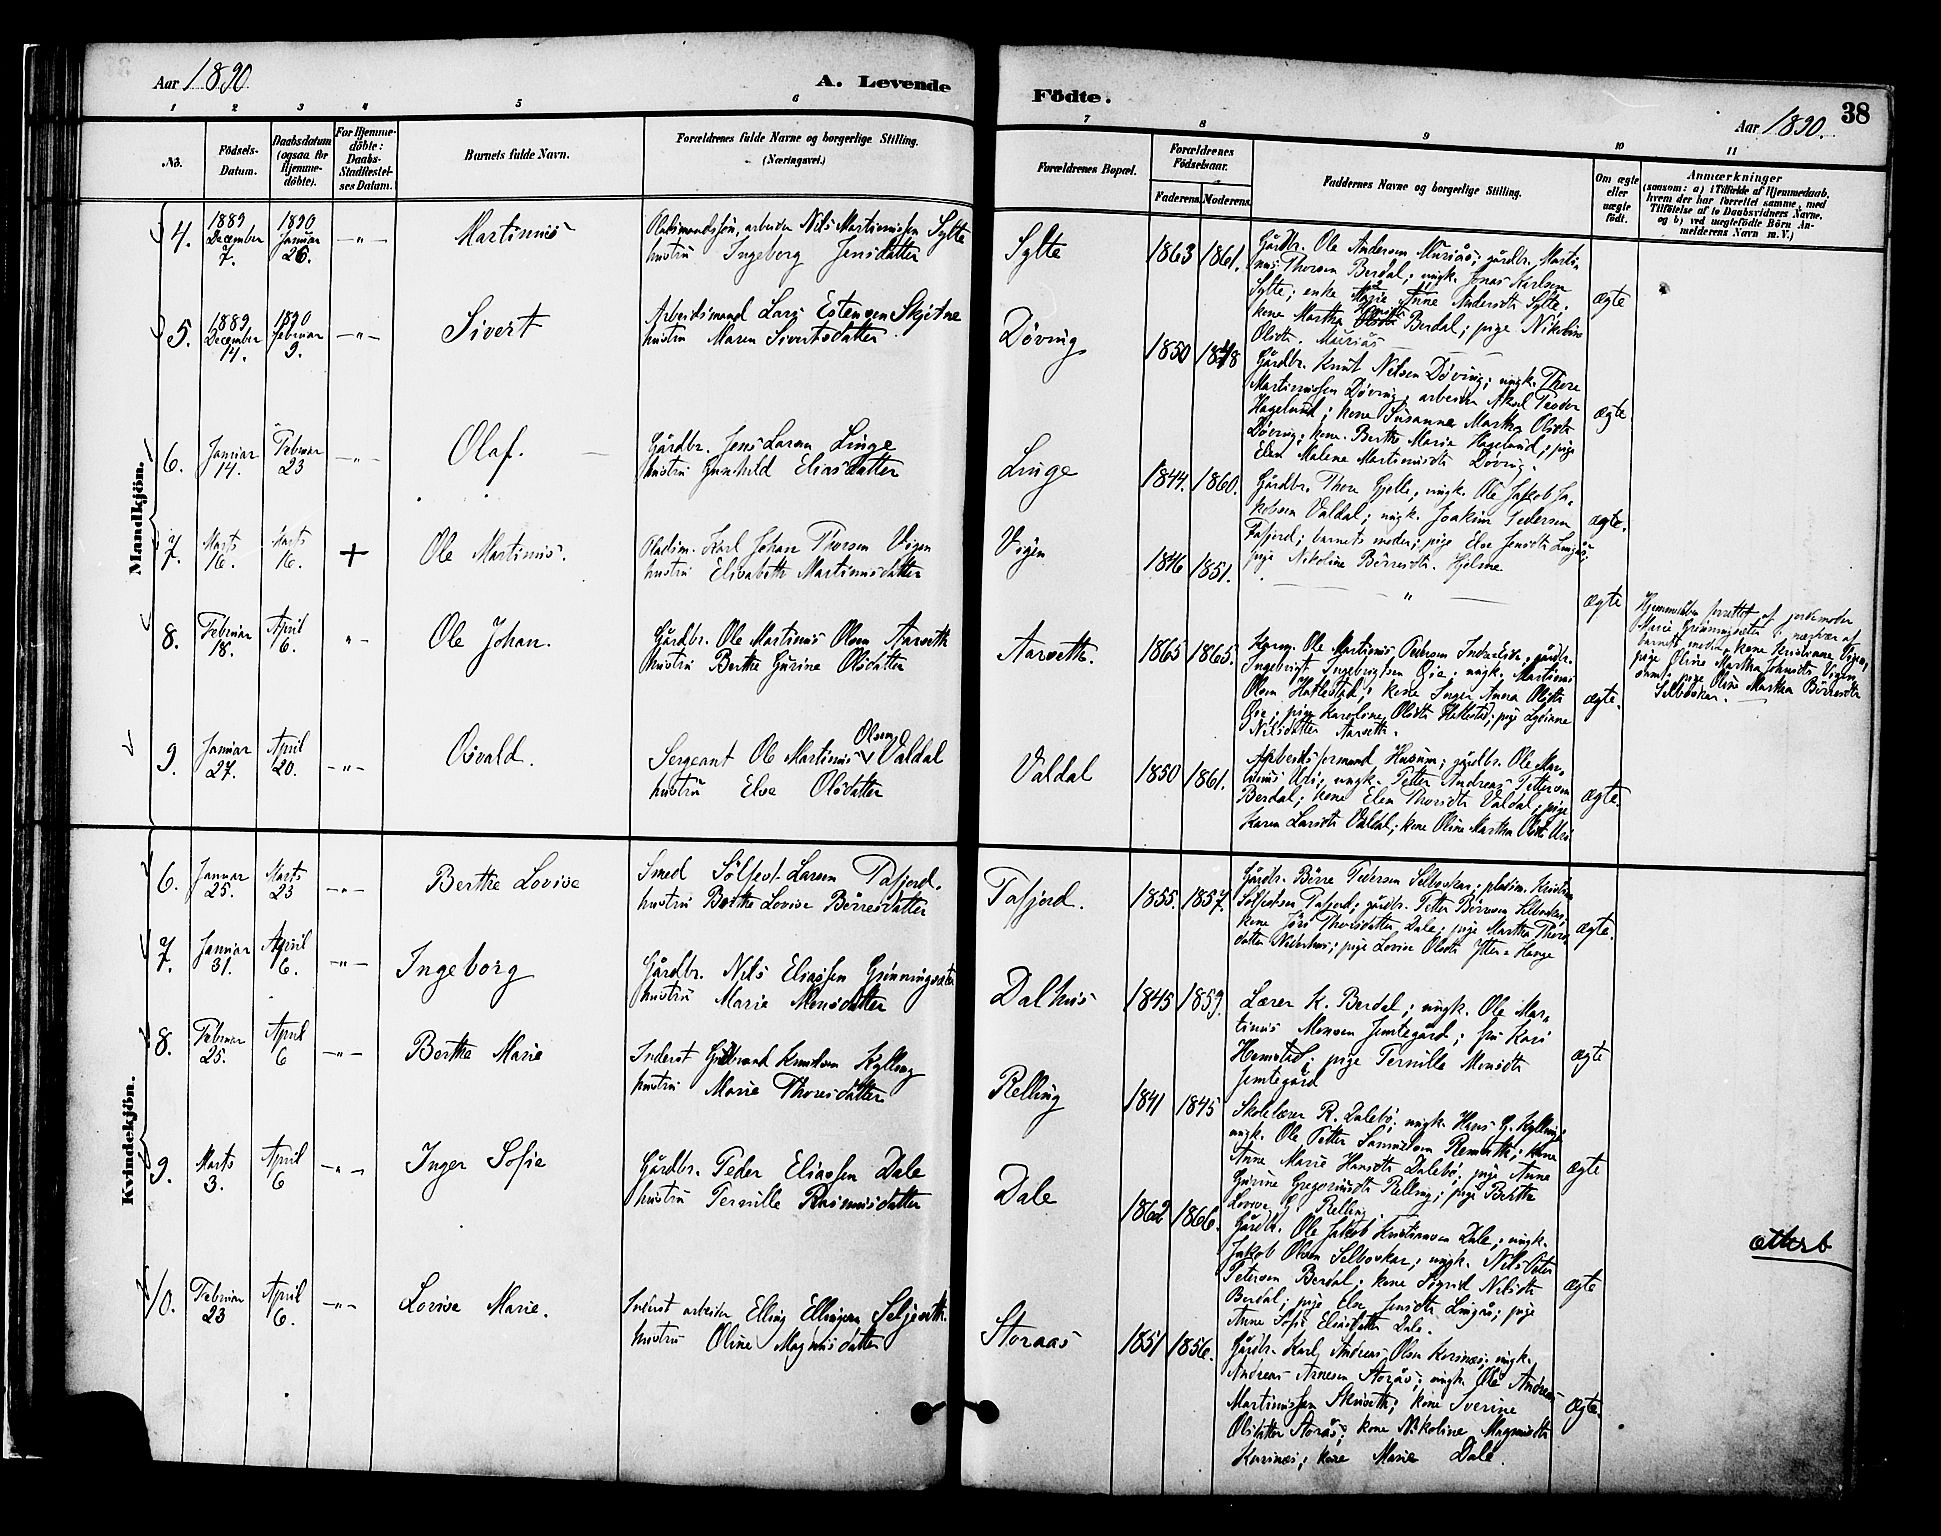 Aar 1890.
A. Levende
1 2 3 4 5 6
No.
Födsels-Datum.
Daabsdatum (ogsaa for Hjemme-döbte).
For Hjemme-döbte: Daabs-Stadfæstel-ses Datum.
Barnets fulde Navn.
Forældrenes fulde Navne og borgerlige Stilling.
(Næringsvei.)
Mandkjön.
4. 1889 December 7. 1890 Januar 26. —„— Martinus
arbeider Nils Martinussen Sylte
hustru Ingeborg Jensdatter
5. 1889 December 14. 1890 Februar 9. —„— Sivert
Arbeidsmand Lars Estensen Skjetne
hustru Maren Sivertsdatter
6. Januar 14. Februar 23 —„— Olaf.
Gårdbr. Jens Larsen Linge
hustru Gunhild Eliasdatter
7. Marts 16. Marts 16. + Ole Martinus.
Pladsm. Karl Johan Thorsen Vigen
hustru Elisabeth Martinusdatter
8. Februar 18. April 6. „— Ole Johan.
Gårdbr. Ole Martinus Olsen Aarseth
hustru Berthe Gurine Olsdatter
9. Januar 27. April 20. —„— Osvald.
Sergeant Ole Martinus Olsen Valdal
hustru Else Olsdatter
Kvindekjön.
6. Januar 25. Marts 23 —„— Berthe Lovise
Smed Sölfest Larsen Tafjord.
hustru Berthe Lovise Börresdatter
7. Januar 31. April 6. —„— Ingeborg
Gårdbr. Nils Eliassen Grønningsæter
hustru Marie Monsdatter
8. Februar 25. April 6 —„— Berthe Marie
Inderst Gulbrand Knutsen Kylling
hustru Marie Thoresdatter
9. Marts 3. April 6 —„— Inger Sofie
Gårdbr. Peder Eliassen Dale
hustru Pernille Rasmusdatter
10. Februar 23 April 6. —„— Lovise Marie.
Inderst arbeider Elling Ellingsen Seljeseth.
hustru Oline Magnusdatter
Födte.
Aar 1890.
38
7 8 9 10 11
Forældrenes Bopæl.
Forældrenes Födselsaar.
Faderens. Moderens.
Faddernes Navne og borgerlige Stilling.
Om ægte eller uægte födt.
Anmærkninger
(saasom: a) i Tilfælde af Hjemmedaab, hvem der har forrettet samme, med Tilföielse af to Daabsvidners Navne, og b) ved uægtefödte Börn An-melderens Navn m. V.)
Sylte 1863 1861.
Gårdbr. Ole Andersen Muriås; gårdbr. Marti-
nus Thorsen Berdal; ungk. Jonas Karlsen
Sylte; enke Anne Andersdt Sylte;
kone Martha Berdal; pige Nikoline
Olsdt. Muriås
ægte
Döving 1850 1848
Gårdbr. Knut Nilsen Döving; ungk. Thore
Martinussen Döving; arbeider Aksel Teodor
Hagelund; kone Susanne Martha Olsdt
Döving; kone Berthe Marie Hagelund; pige
Elen Malene Martinusdt Döving.
ægte
Linge 1844. 1860.
Gårdbr. Thore Gjelle; ungk. Ole Jakob Ja-
kobsen Valdal; ungk. Joakim Pedersen
Tafjord; barnets moder; pige Else Jensdt Lingås;
pige Nikoline Börresdt. Hjelme
ægte.
Vigen 1846 1851.
— „ —
ægte
Hjemmedåben forrettet af jordemoder
Marie Grönningsæter i nærvær af
barnets moder, kone Kristianne Vigen,
pige Oline Martha Johnsdt Vigen,
samt pige Oline Martha Börresdt
Selboskar.
Aarseth. 1865 1865.
Ole Martinus Pedersen; gårdbr.
Ingebrigt Ingebrigtsen Öie; ungk. Martinus
Olsen Hatlestad; kone Inger Anna Olsdt
Öie; pige Karoline Olsdt Hatlestad; pige Lysianne
Nilsdatter Aarseth.
ægte.
Valdal 1850 1861.
Arbeidsformand Husum; gårdbr. Ole Mar-
tinus Uri; ungk. Petter Andreas Pettersen
Berdal; kone Elen Thorsdt Valdal; pige
Karen Larsdt Valdal; kone Oline Martha Olsdt Uri
ægte.
Tafjord. 1855. 1857.
Gårdbr. Börre Pedersen Selboskar; pladsm. Kristian
Sölfestsen Tafjord; gårdbr. Petter Börresen Selboskar;
kone Jöri Thorsdatter Dale; pige Martha Thors-
datter; pige Lovise Olsdt Ytter-Hauge
ægte.
Dalhus 1845 1859.
Lærer K. Berdal; ungk. Ole Mar-
tinus Monsen Jemtegård; fru Kari
Hemstad; pige Pernille Monsdt
Jemtegård
ægte
Relling 1841 1845
Skolelærer R. Dalebö; ungk. Hans G. Kylling;
ungk. Ole Petter Samuelsen; kone
Anne Marie Hansdt Dalebö; pige Anne
Gurine Gregoriusdt Relling; pige Berthe
Lovise G. Relling
ægte
Dale 1862 1866.
Gårdb. Ole Jakob Kristiansen Dale; ungk.
Jakob Olsen Selboskar; ungk. Nils Peter
Petersen Berdal; kone Sigrid Nilsdt
Berdal; pige Else Jensdt Lingås; pige
Anne Sofie Eliasdatter Dale.
ægte
Storaas 1851 1856.
Gårdbr. Karl Andreas Olsen Korsnæs; ungk.
Andreas Arnesen Storås; ungk. Ole Andreas
Martinussen; kone Sverine
Olsdatter Storås; kone Nikoline Magnusdt
Korsnæs; kone Marie Dale.
ægte.